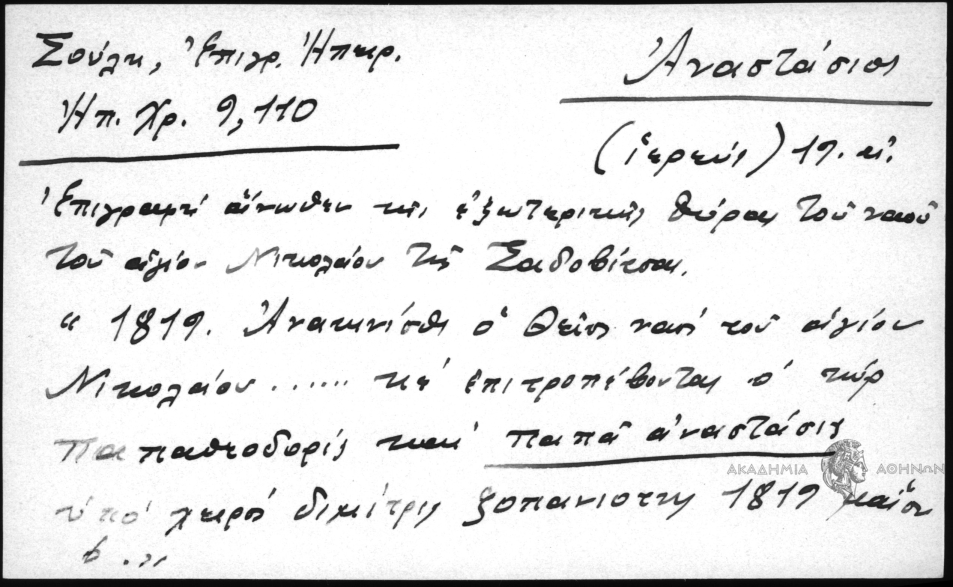 Σούλη, Ἐπιγρ. Ἠπειρ.
Ἠπ. Χρ. 9, 110
Ἀναστάσιος
(ἱερεύς) 19. αἰ.
Ἐπιγραφή ἄνωθεν τῆς ἐξωτερικῆς θύρας τοῦ ναοῦ
τοῦ ἁγίου Νικολάου τῆς Σαδοβίτσας.
“ 1819. Ἀνακινίσθι ὁ θεῖος ναός τοῦ ἁγίου
Νικολάου ...... κέ ἐπιτροπέβοντας ὁ κύρ
παπαθεοδορίς καί παπᾶ ἀναστάσις
ὑπό χειρός διμίτρις ξοπανιοτης 1819 μαΐου
6 ..”
ΑΚΑΔΗΜΙΑ ΑΘΗΝΩΝ